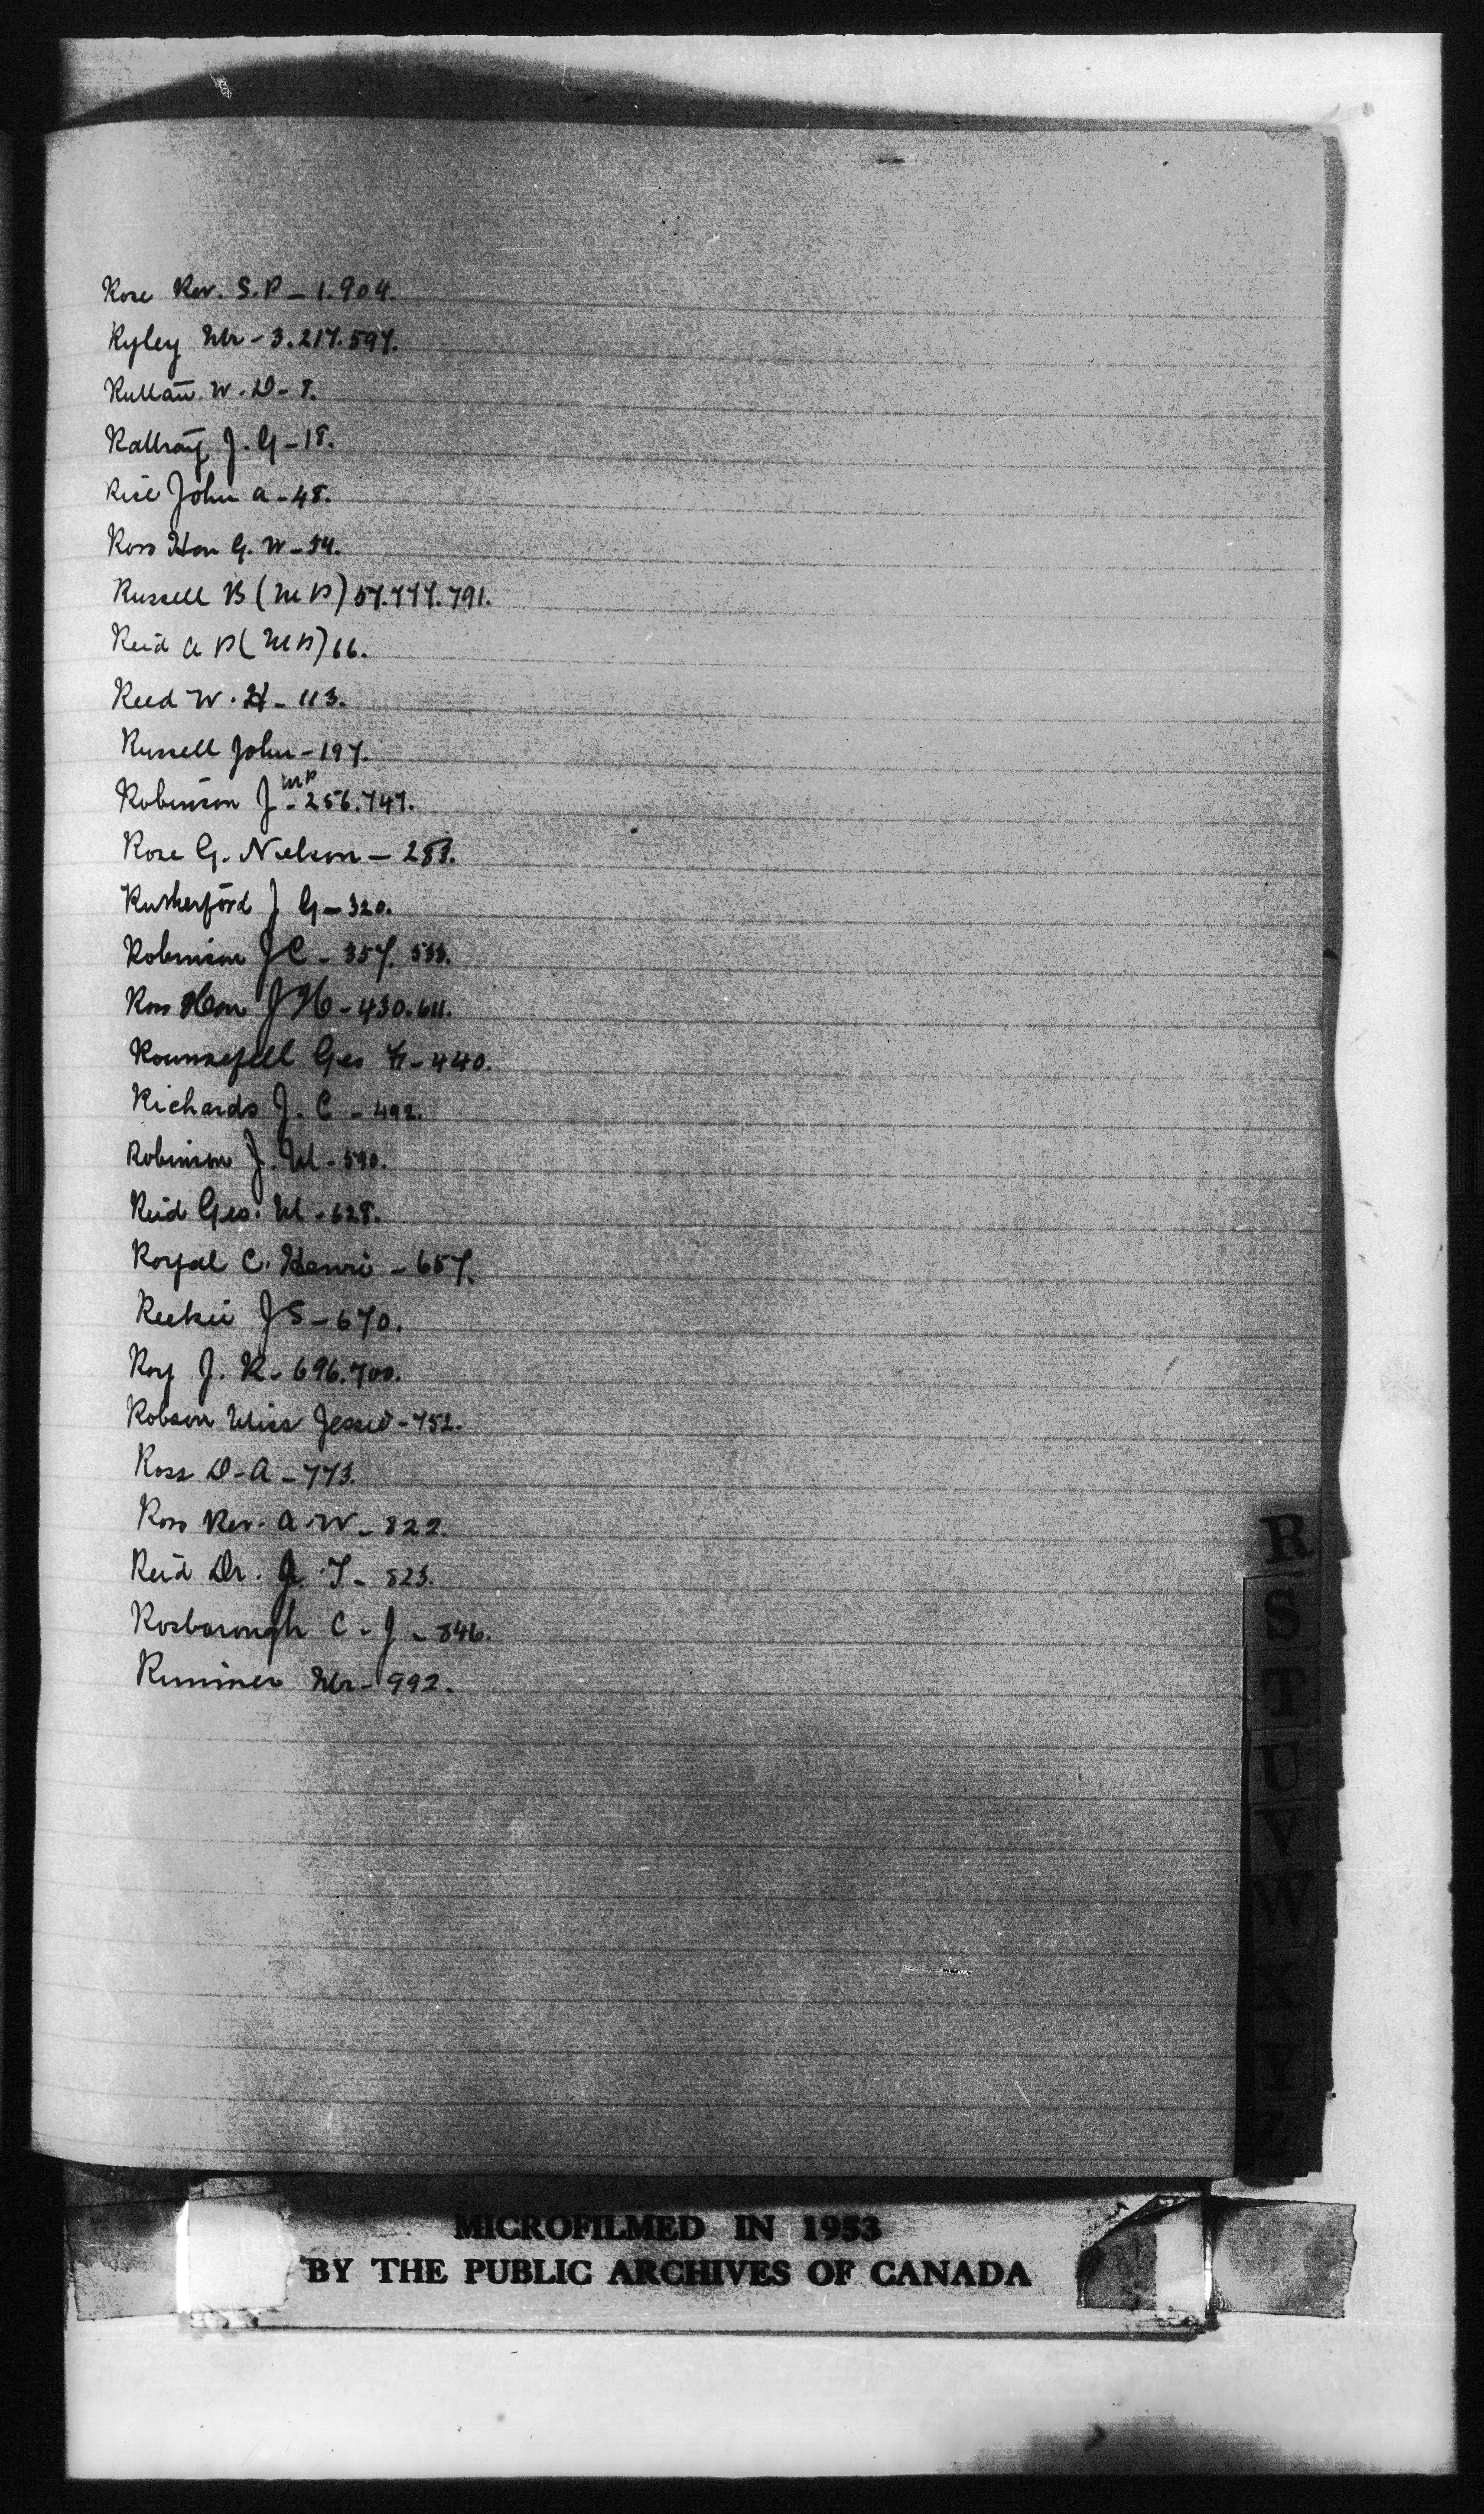 Rose Rev. S.P - 1.904.
Ryley Mr - 3.217.597.
Ruttan W. D - 8.
Rattray J. G - 18.
Rice John A - 48.
Ross Hon G. W - 54.
Russell B (M P) 57.777.791.
Reid A P (M P) 66.
Reed W. H - 113.
Russell John - 197.
Robinson J MP - 256.747.
Rose G. Nelson - 283.
Rutherford J G - 320.
Robinson J C - 357. 533.
Ross Hon J H - 430.611.
Rounsefell Geo F. - 440.
Richards J. C - 492.
Robinson J. M - 590.
Reid Geo. M - 628.
Royal C. Henri - 657.
Reekie J S - 670.
Roy J. R - 696.700.
Robson Miss Jessie - 752.
Ross D - A - 773.
Ross Rev. A. W - 822.
Reid Dr. J - 823.
Rosborough C. J - 846.
Rimmer Mr - 992.
R
S
T
U
V
W
X
Y
Z
MICROFILMED IN 1953
BY THE PUBLIC ARCHIVES OF CANADA